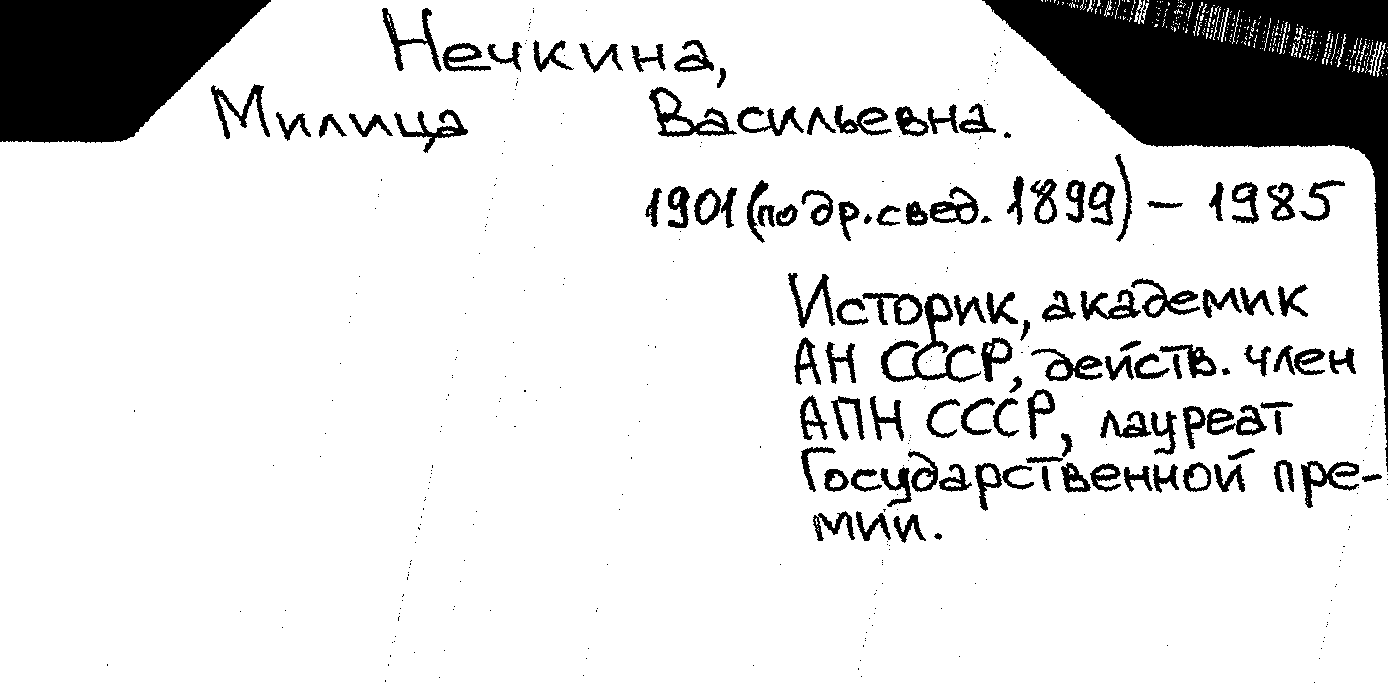 Нечкина,
Милица Васильевна.
1901 (по др. свед. 1899) – 1985
Историк, академик
АН СССР, действ. член
АПН СССР, лауреат
Государственной пре-
мии.